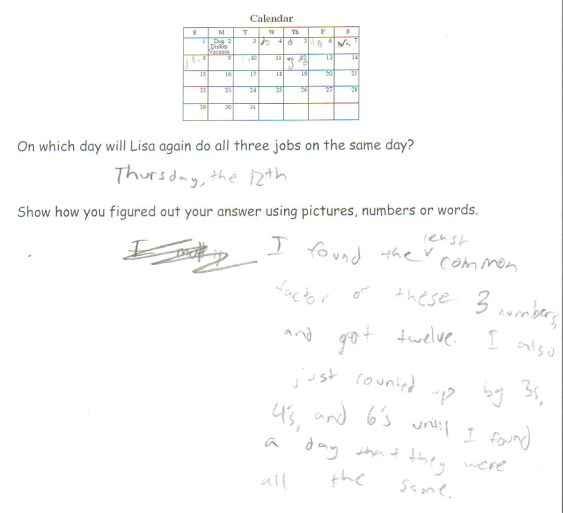 Calendar
S M T W Th F S
1 Dog 2 3 4 5 6 7
Dishes
Vacuum
8 9 10 11 12 13 14
15 16 17 18 19 20 21
22 23 24 25 26 27 28
29 30 31
On which day will Lisa again do all three jobs on the same day?
Thursday, the 12th
Show how you figured out your answer using pictures, numbers or words.
I found the least common
factor of these 3 numbers,
and got twelve. I also
just counted up by 3s,
4's, and 6's until I found
a day that they were
all the same.